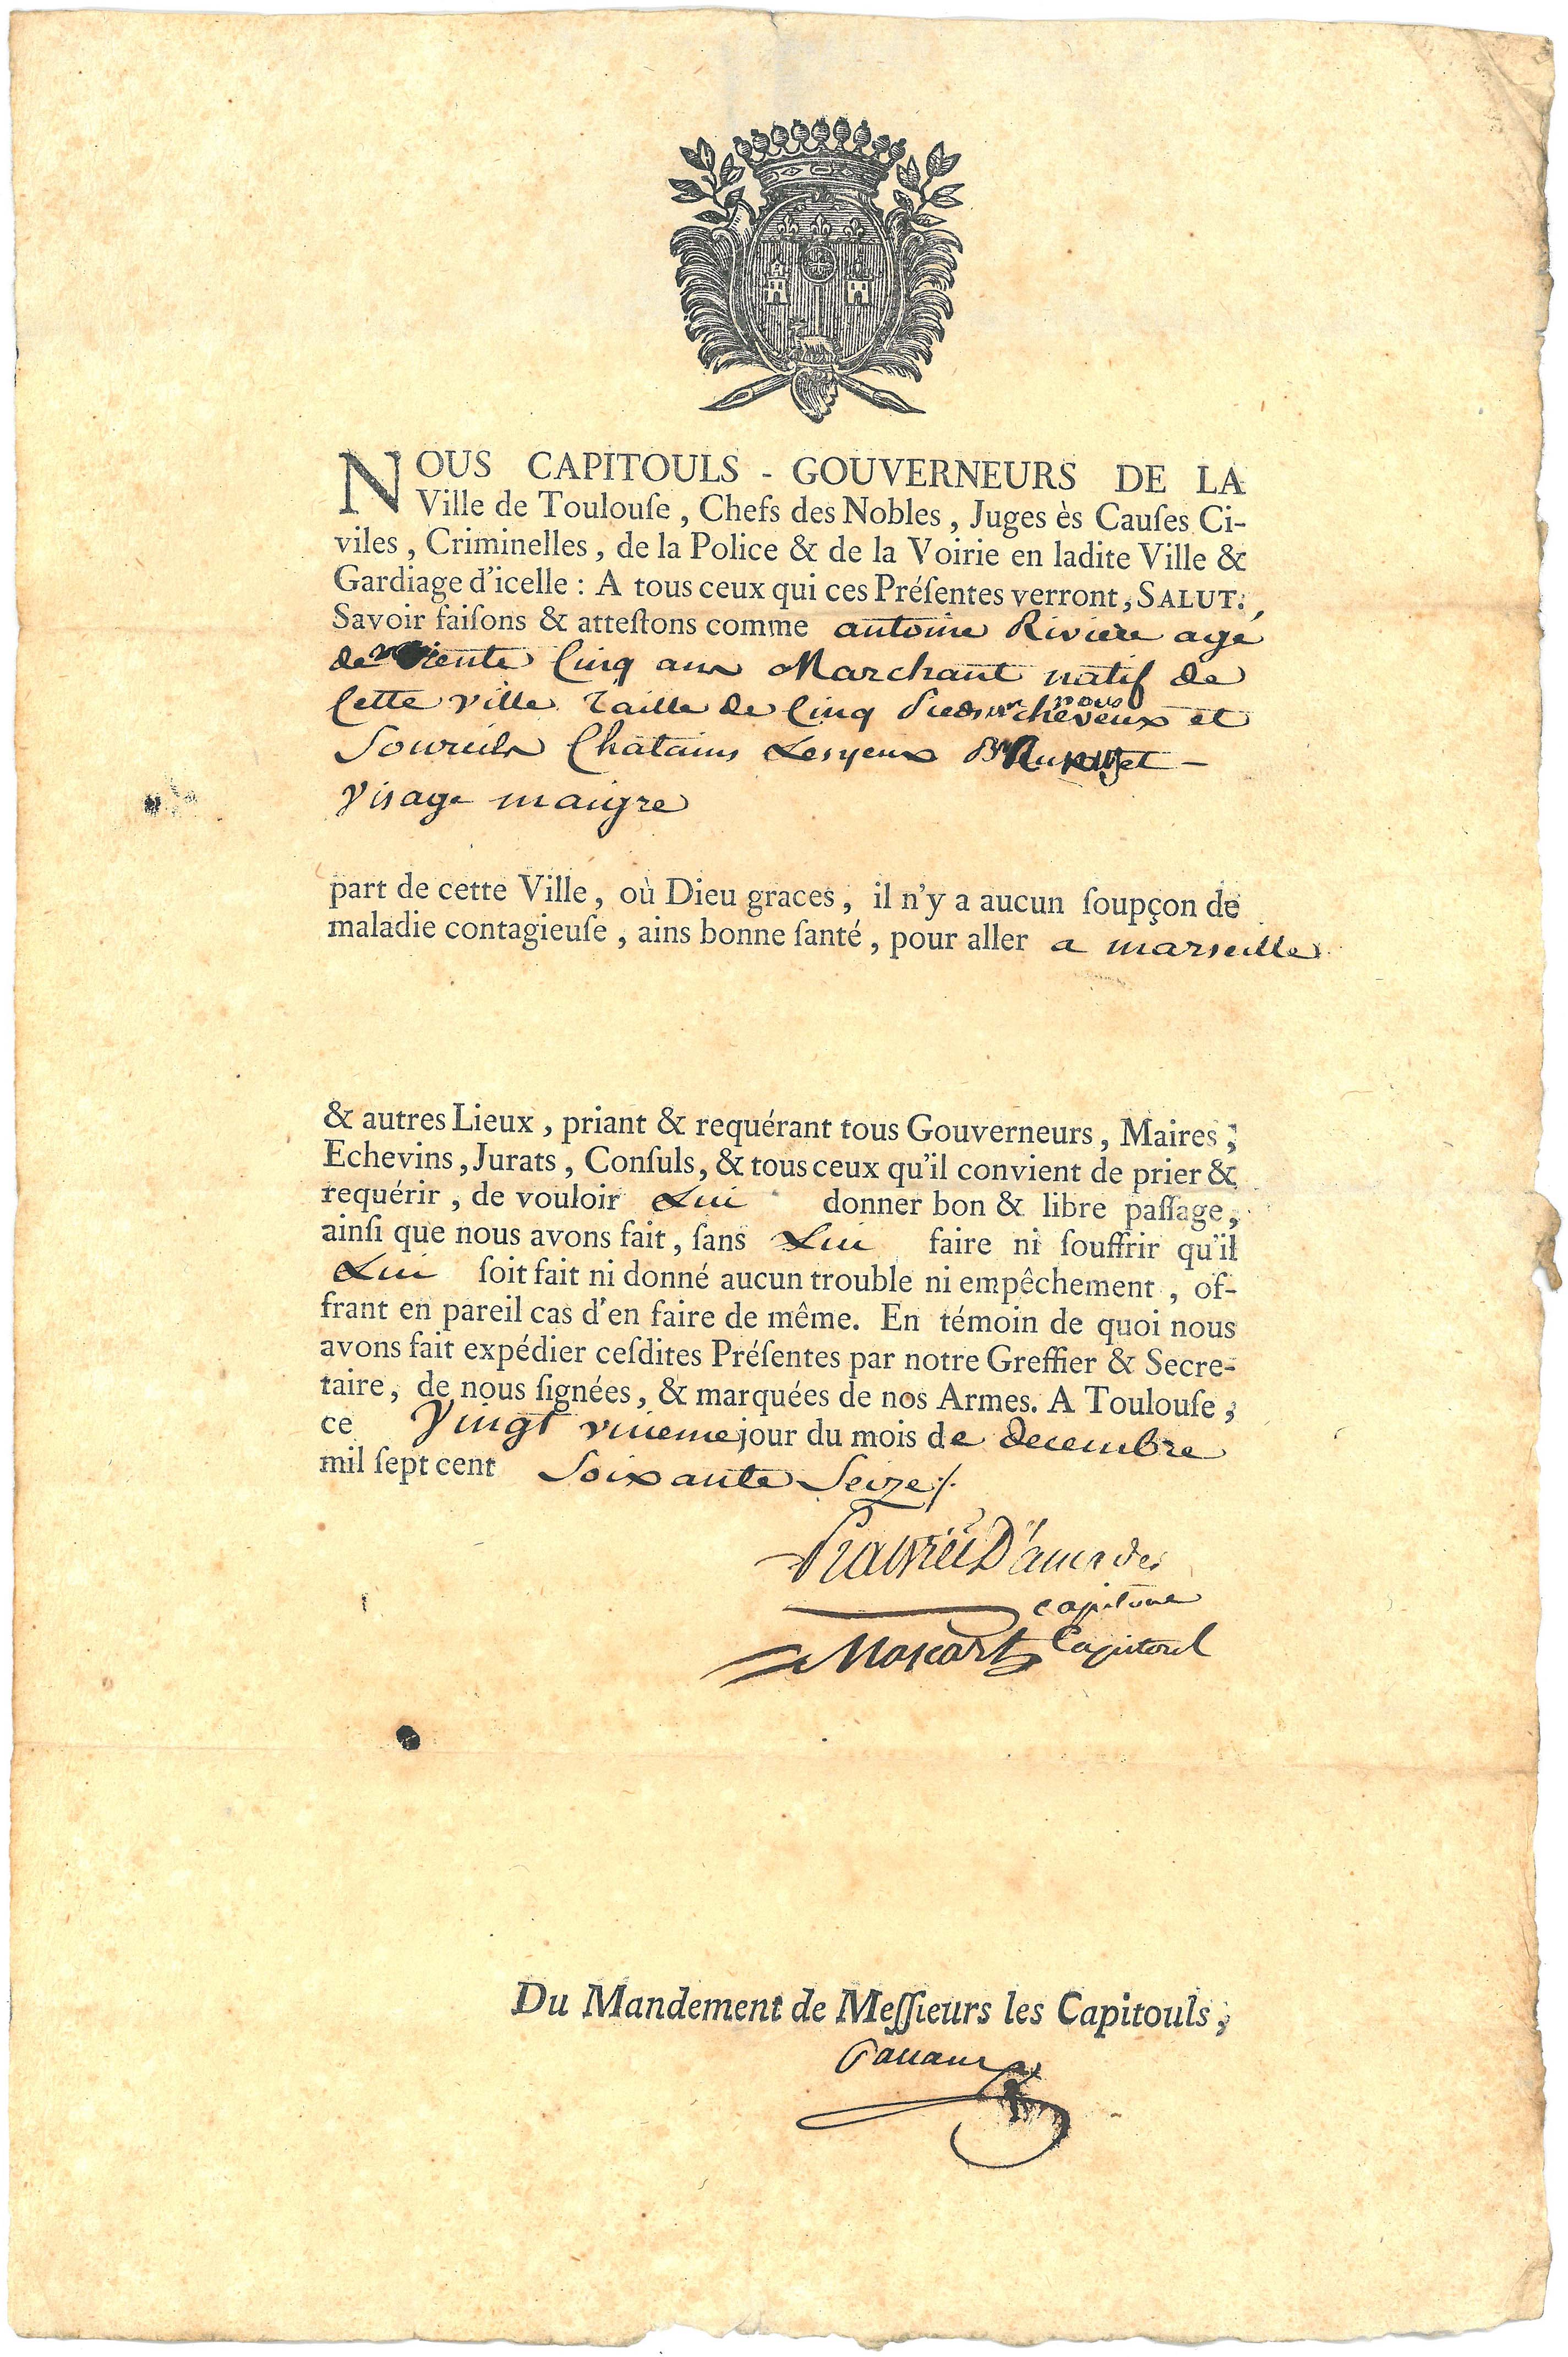 NOUS CAPITOULS - GOUVERNEURS DE LA
Ville de Toulouſe, Chefs des Nobles, Juges ès Cauſes Ci-
viles, Criminelles, de la Police & de la Voirie en ladite Ville &
Gardiage d'icelle : A tous ceux qui ces Préſentes verront, SALUT.
Savoir faiſons & atteſtons comme antoine Riviere agé
de trente Cinq ans Marchant natif de
Cette ville taille de Cinq pieds cheveux et
Sourcils Chatains Les yeux et
visage maigre
part de cette Ville, où Dieu graces, il n'y a aucun ſoupçon de
maladie contagieuſe, ains bonne ſanté, pour aller a marseille
& autres Lieux, priant & requérant tous Gouverneurs, Maires,
Echevins, Jurats, Conſuls, & tous ceux qu'il convient de prier &
requérir, de vouloir Lui donner bon & libre paſſage,
ainſi que nous avons fait, ſans Lui faire ni ſouffrir qu'il
Lui ſoit fait ni donné aucun trouble ni empêchement, of-
frant en pareil cas d'en faire de même. En témoin de quoi nous
avons fait expédier ceſdites Préſentes par notre Greffier & Secre-
taire, de nous ſignées, & marquées de nos Armes. A Toulouſe,
ce Vingt jour du mois de decembre
mil ſept cent Soixante Seize /.
capitoul
Mascart Capitoul
Du Mandement de Meſſieurs les Capitouls,